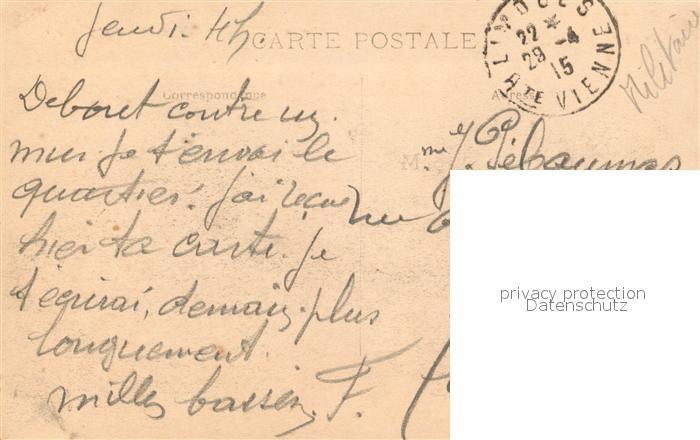 Jeudi. 4h.
CARTE POSTALE
LIMOGES
22 * 
29 -4
15
HTE VIENNE
Militaire
Correspondance
Adresse
Debout contre un
mur je t'envoi le
quartier. J'ai recu
hier ta carte. Je
t'ecirai, demain, plus
longuement.
milles baisers. F.
M
me J.
privacy protection
Datenschutz